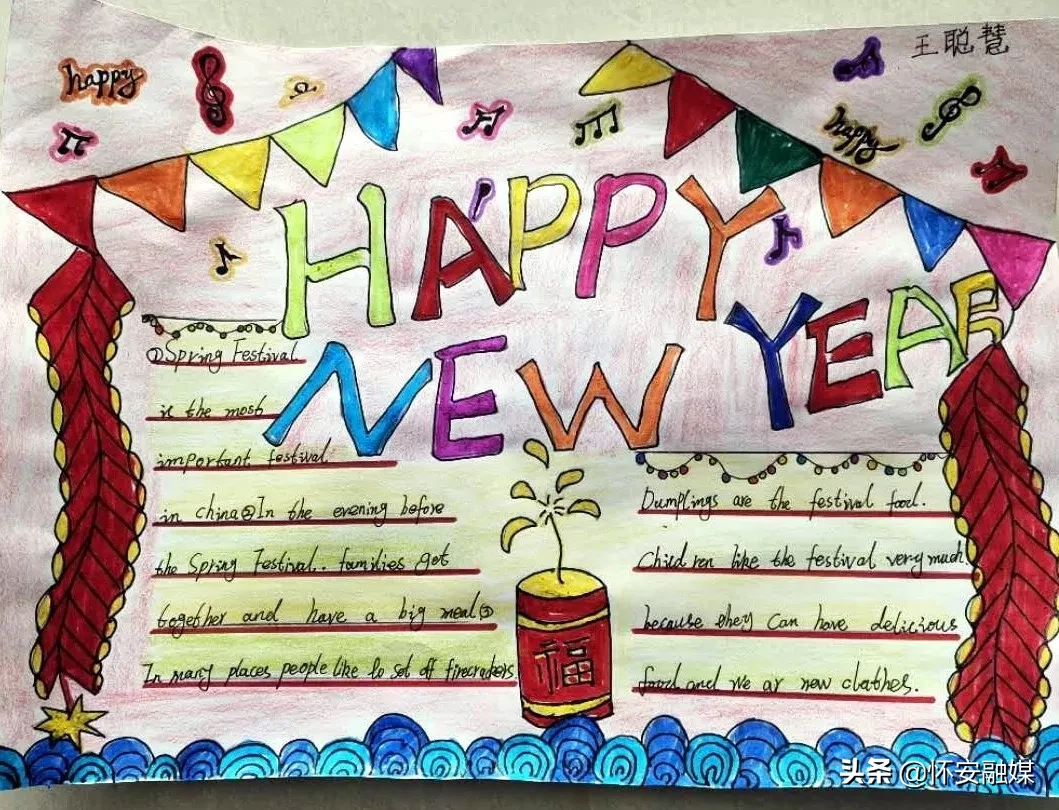 王聪慧
happy
happy
HAPPY
NEW YEAR
①Spring Festival
is the most
important festival
in china②In the evening before
the Spring Festival.. families get
together and have a big meal③
In many places people like to set off firecrackers
Dumplings are the festival food.
Children like the festival very much.
because they can have delicious
food and we ar new clothes.
福
头条 @怀安融媒